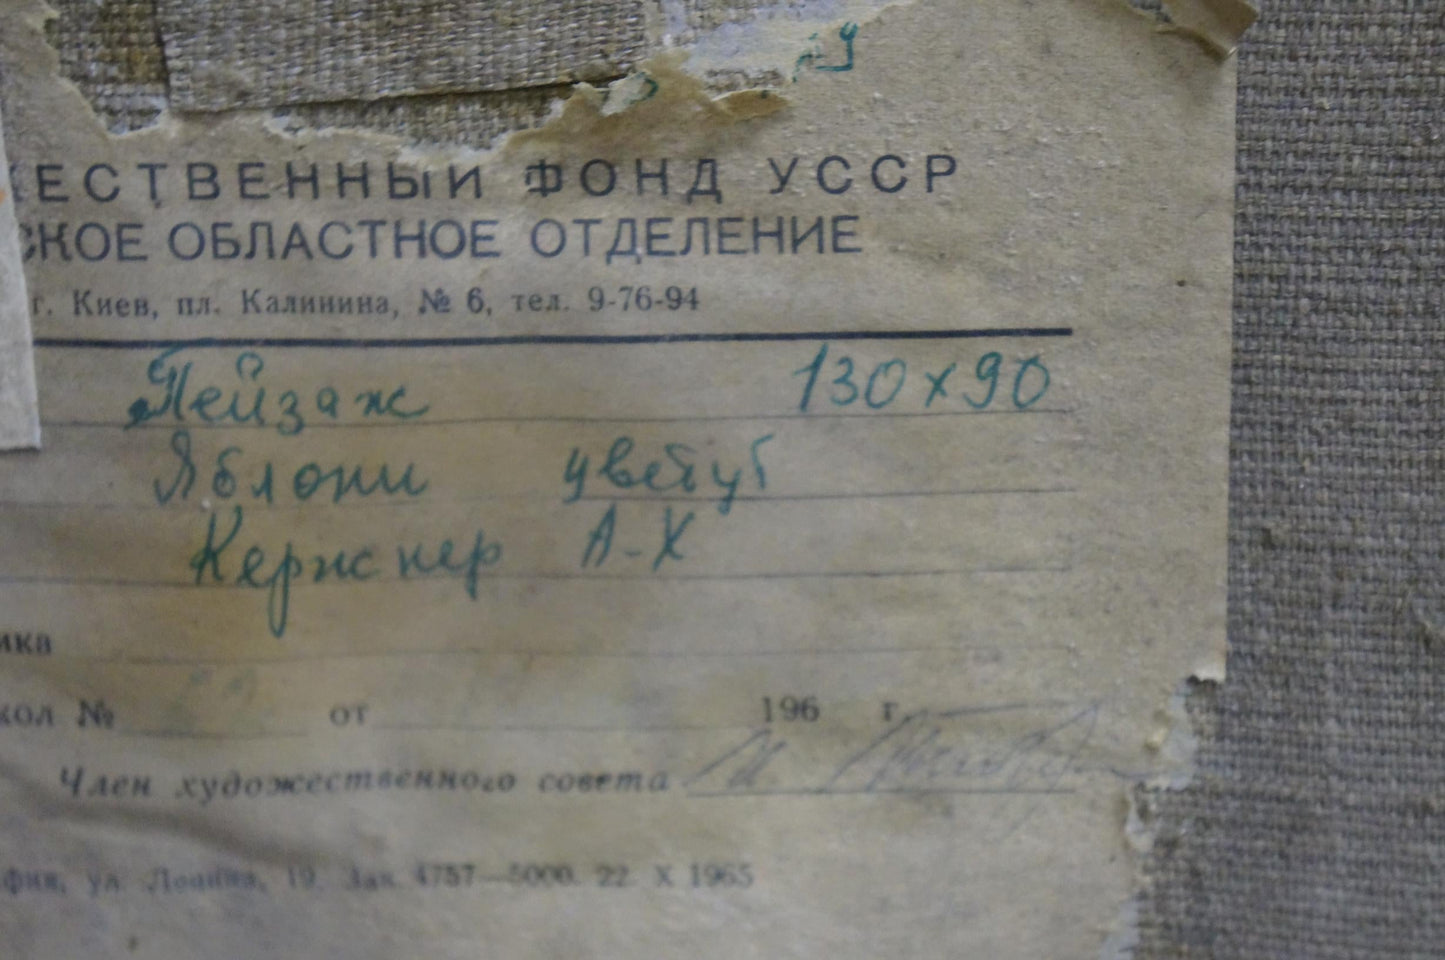 ЖЕСТВЕННЫЙ ФОНД УССР
СКОЕ ОБЛАСТНОЕ ОТДЕЛЕНИЕ
г. Киев, пл. Калинина, № 6, тел. 9-76-94
Пейзаж 130х90
Яблони цветут
Кержнер А-Х
ика
кол № от 196 г.
Член художественного совета
фия, ул. Ленина, 19. Зак 4757—5000. 22. X 1965